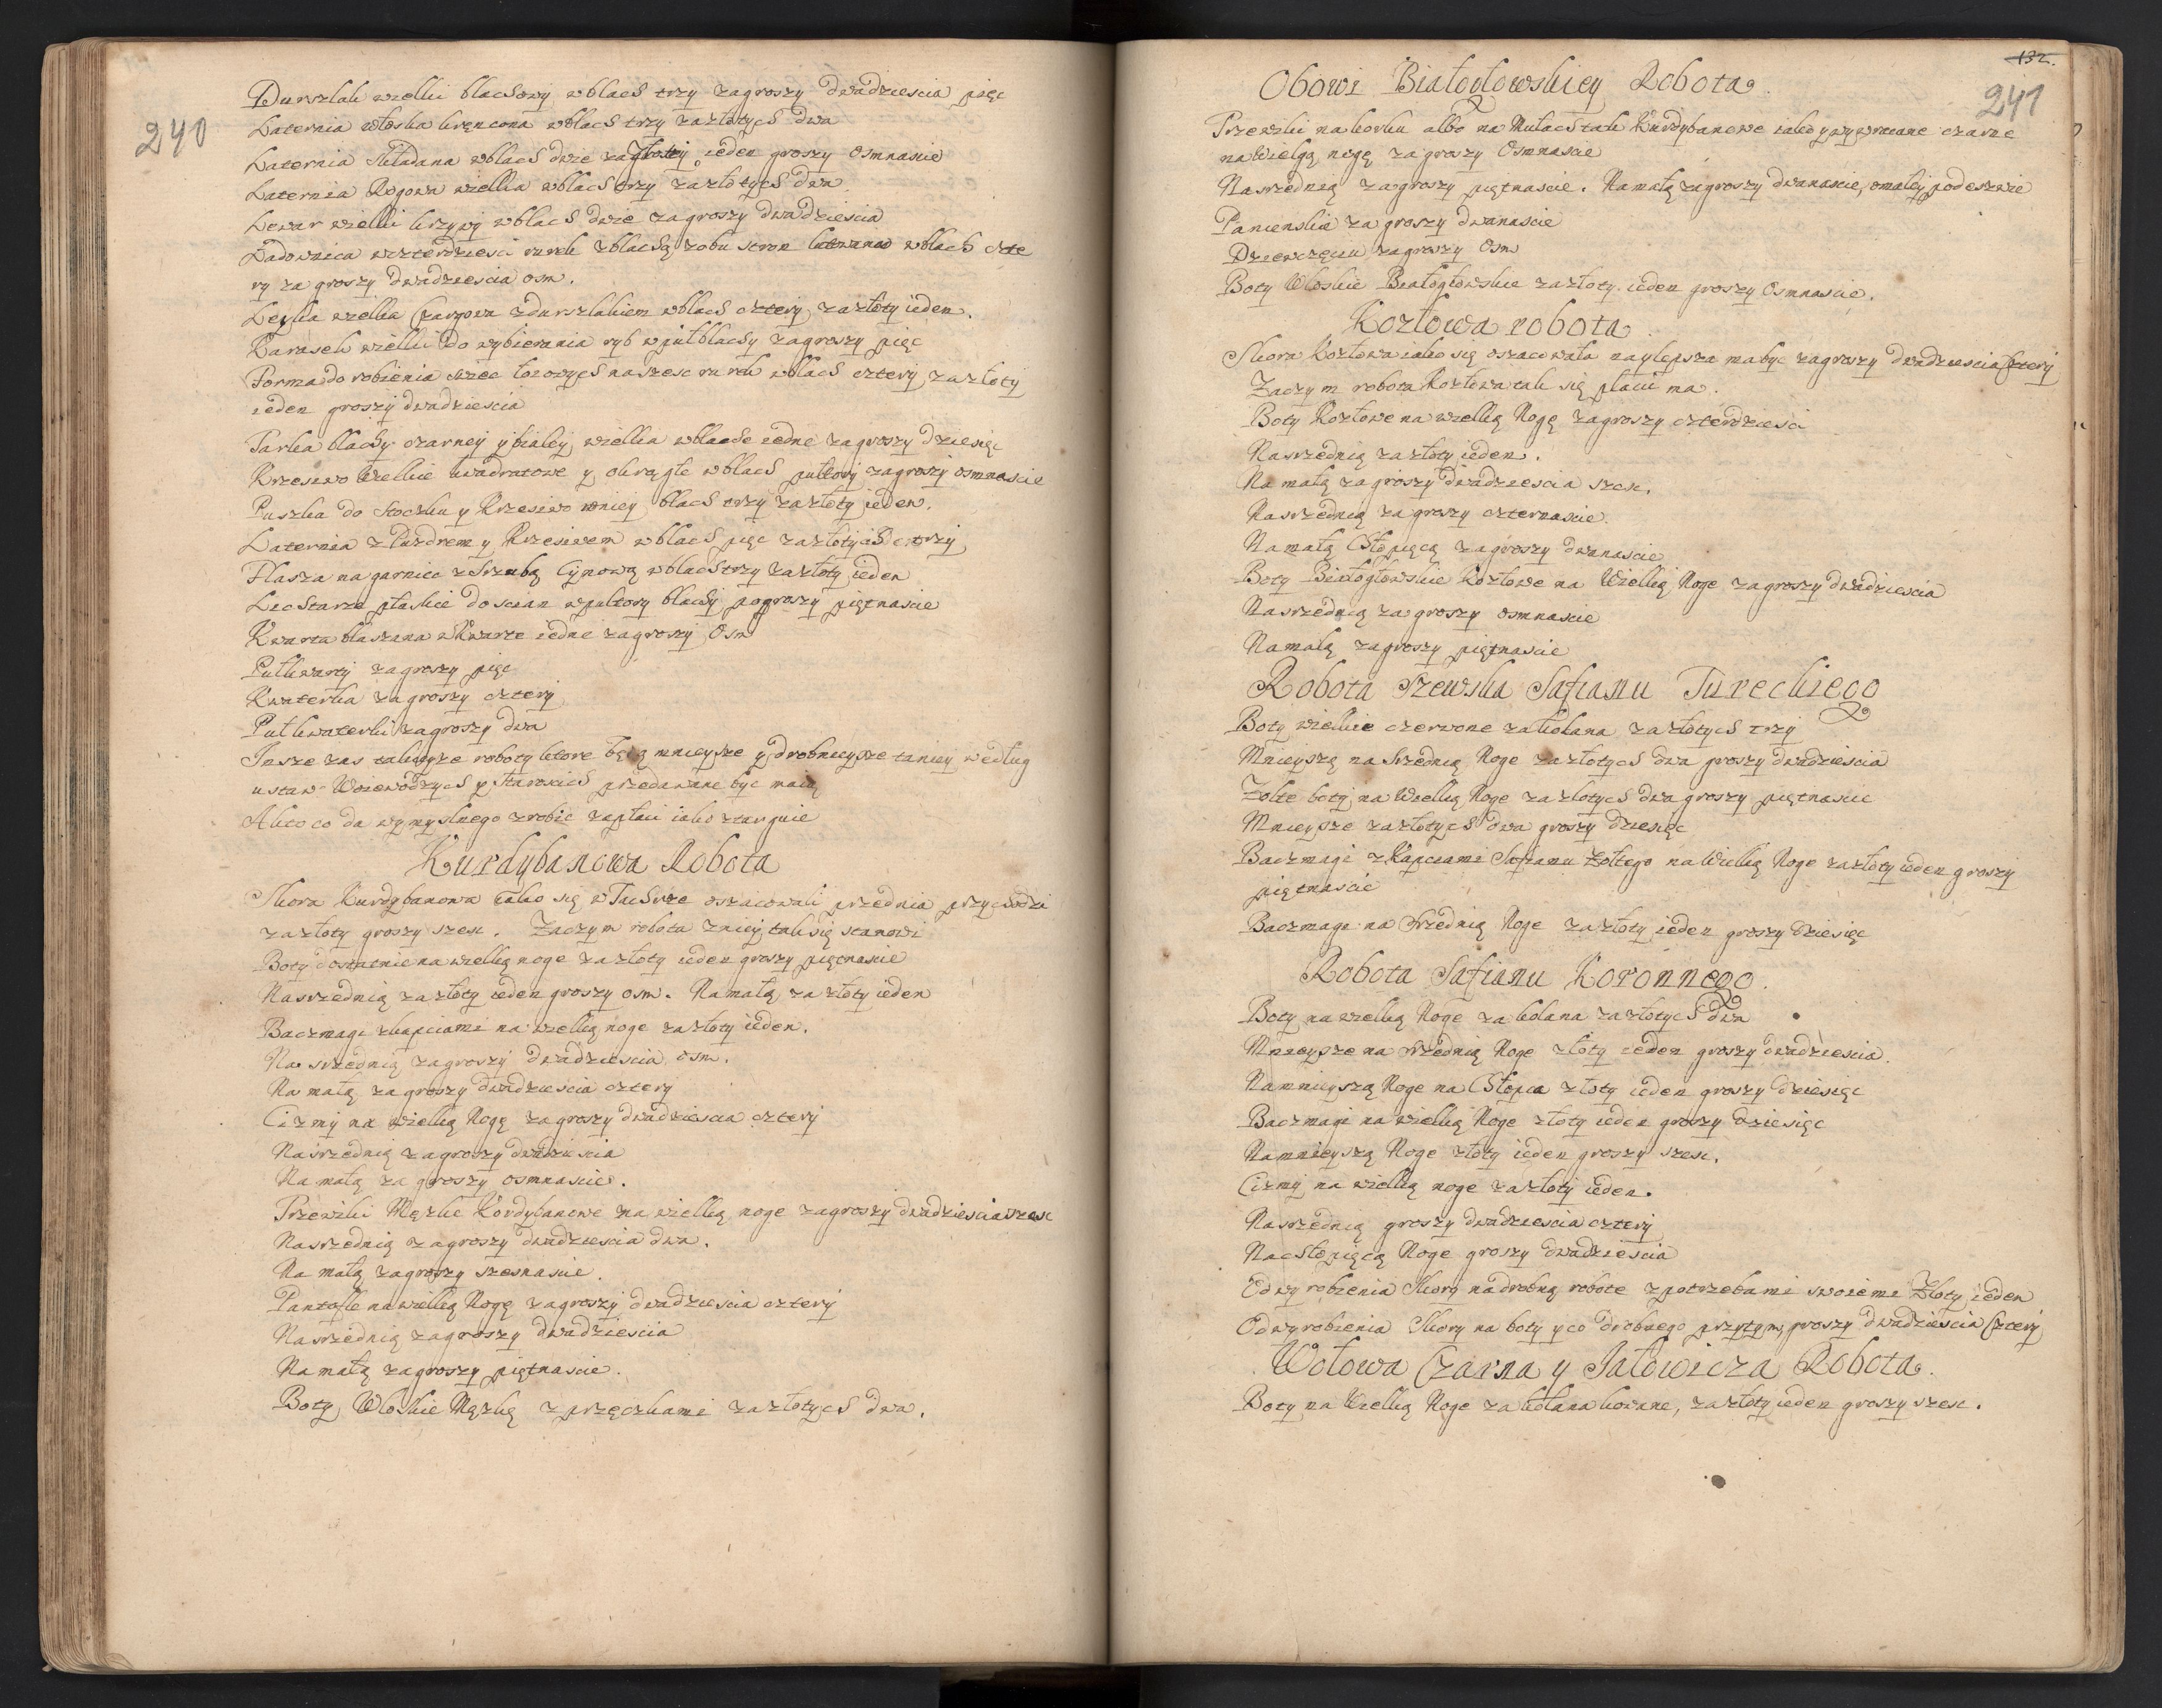 240
Durszlak wielki blachowy w blach trzy za groszy dwadziescia pięc
Laternia włoska kręncona w blach trzy za złotych dwa
Laternia składana w blach dwie za złoty ieden groszy osmnascie
Laternia Rogowa wielka w blach trzy za złotych dwa
Lewar wielki krzywy w blach dwie za groszy dwadziescia
Ladownica w czterdziesci rurek z blachą z obu stron lutowana w blach czte
ry za groszy dwadziescia osm.
Leyka wielka Czarzowa z durszlakiem w blach cztery za złoty ieden.
Karasek wielki do wybierania ryb w puł blachy za groszy pięc
Forma do robienia swiec łoiowych na szesc rurek w blach cztery za złoty
ieden groszy dwadziescia
Tarka blachy czarney y białey wielka w blache iedne za groszy dziesięc
Krzesiwo Wielkie kwadratowe y okrągłe w blach pułtory za groszy osmnascie
Puszka do stoczku y Krzesiwo w niey blach trzy za złoty ieden.
Laternia z Puzdrem y Krzesiwem w blach pięc za złotych trzy
Flasza na garniec z szrubą Cynową w blach trzy za złoty ieden
Lichtarze płaskie do scian w pułtory blachy po groszy piętnascie
Kwarta blaszana w Kwarte iedne za groszy Osm
Pułkwarty za groszy pięc
Kwaterka za groszy cztery
Puł kwaterki za groszy dwa
Insze zas takieysze roboty ktore będą mnieysze y drobnieysze taniey według
ustaw Woiewodzych y Staroscich przedawane byc maią
A kto co da wymyslnego zrobic zapłaci iako ztarguie
Kurdybanowa Robota
Skora Kurdybanowa iako się w Tuchrze oszacowali przednia przychodzi
za złoty groszy szesc. Zaczym robota z niey tak się stanowi
Boty dostatnie na wielką noge za złoty ieden groszy piętnascie
Na srzednią za złoty ieden groszy osm. Na małą za złoty ieden
Baczmagi z kapciami na wielką noge za złoty ieden.
Na srzednią za groszy dwadziescia osm.
Na małą za groszy dwadziescia cztery
Cizmy na wielką Nogę za groszy dwadziescia cztery
Na srzednią za groszy dwadziescia
Na małą za groszy osmnascie.
Trzewiki Męzkie Kordybanowe na wielką noge za groszy dwadziescia szesc
Na srzednią za groszy dwadziescia dwa.
Na małą za groszy szesnascie.
Pantofle na wielką Nogę za groszy dwadziescia cztery
Na srzednią za groszy dwadziescia
Na małą za groszy piętnascie.
Boty Włoskie Męzkię z przęczkami za złotych dwa.
132.
241
Obowi Białogłowskiey Robota.
Trzewiki na korku albo na Mulach tak Kurdybanowe iako y wywracane czarne
na Wielgą nogę za groszy Osmnascie
Na srzednią za groszy piętnascie. Na małą za groszy dwanascie, o małey podeszwie
Panienskie za groszy dwanascie
Dziewczęciu za groszy Osm
Boty Włoskie Białogłowskie za złoty ieden groszy Osmnascie.
Kozłowa robota.
Skora Kozłowa iako się oszacowała naylepsza ma byc za groszy dwadziescia Cztery
Zaczym robota Kozłowa tak się płacic ma.
Boty Kozłowe na wielką Nogę za groszy czterdziesci
Na srzednią za złoty ieden.
Na małą za groszy dwadziescia szesc.
Na srzednią za groszy czternascie.
Na małą Chłopięcą za groszy dwanascie
Boty Białogłowskie Kozłowe na Wielką Noge za groszy dwadziescia
Na srzednią za groszy osmnascie
Na małą za groszy piętnascie
Robota Szewska Safianu Tureckiego
Boty wielkie czerwone za kolana za złotych trzy
Mnieyszą na Srzednią Noge za złotych dwa groszy dwadziescia
Zolte boty na Wielką Noge za złotych dwa groszy piętnascie
Mnieysze za złotych dwa groszy dziesięc
Baczmagi z Kapciami Safianu żołtego na Wielką Noge za złoty ieden groszy
piętnascie
Baczmagi na Srzednią Noge za złoty ieden groszy dziesięc
Robota Safianu Koronnego.
Boty na wielką Noge za kolana za złotych dwa
Mnieysze na srzednią Noge złoty ieden groszy dwadziescia.
Na mnieyszą Noge na Chłopca złoty ieden groszy dziesięc
Baczmagi na wielką Noge złoty ieden groszy dziesięc
Na mnieyszą Noge złoty ieden groszy szesc.
Cizmy na wielką noge za złoty ieden.
Na srzednią groszy dwadziescia cztery
Na chłopięcą Noge groszy dwadziescia
Od wyrobienia Skory na drobną robote z potrzebami swoiemi Złoty ieden
Od wyrobienia Skory na boty y co drobnego przytym, groszy dwadziescia Cztery
Wołowa Czarna y Jałowicza Robota.
Boty na Wielką Noge za kolana kowane, za złoty ieden groszy szesc.